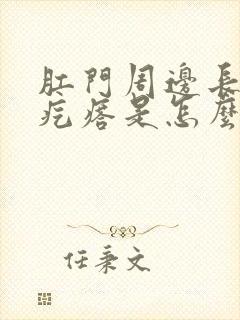 肛門周邊長
疙瘩是怎麼
任秉文